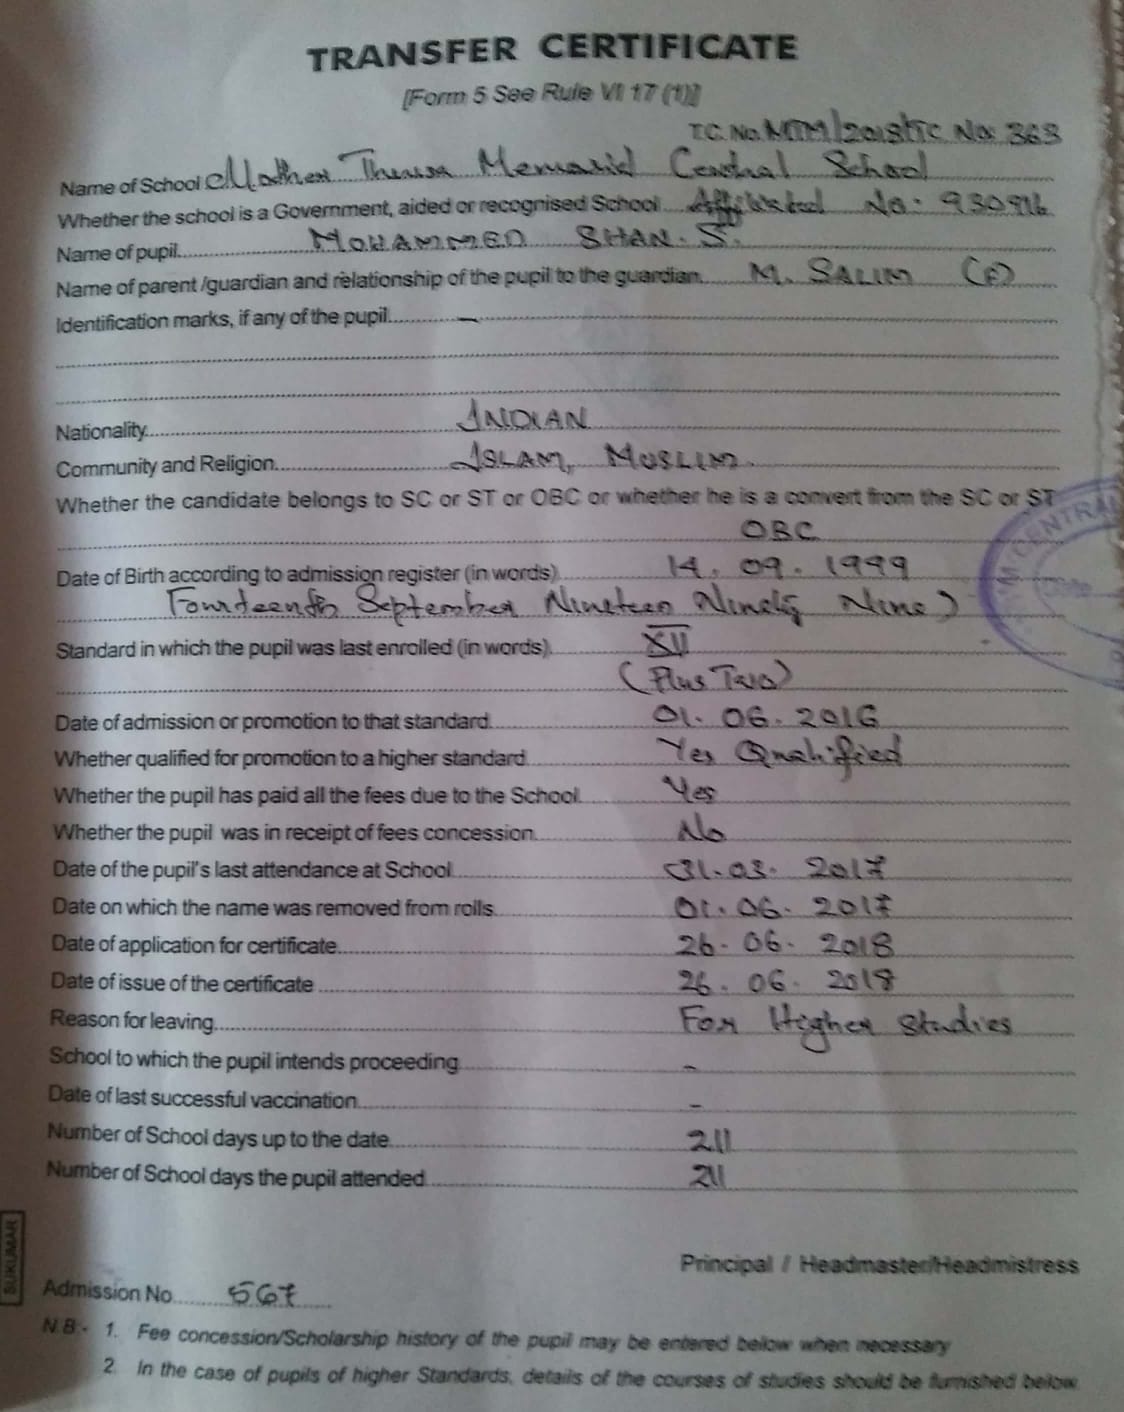 TRANSFER CERTIFICATE
[Form 5 See Rule VI 17 (1)]
T.C. No. MTM/2018/TC No: 363
Name of School Mother Theresa Memorial Central School
Whether the school is a Government, aided or recognised School Affiliated No: 930916
Name of pupil MOHAMMED SHAN. S.
Name of parent /guardian and relationship of the pupil to the guardian. M. SALIM (F)
Identification marks, if any of the pupil –
Nationality INDIAN
Community and Religion ISLAM, MUSLIM.
Whether the candidate belongs to SC or ST or OBC or whether he is a convert from the SC or ST
OBC
Date of Birth according to admission register (in words) 14. 09. 1999
Fourteenth September Nineteen Ninety Nine)
Standard in which the pupil was last enrolled (in words) XII
(Plus Two)
Date of admission or promotion to that standard 01. 06. 2016
Whether qualified for promotion to a higher standard Yes Qualified
Whether the pupil has paid all the fees due to the School Yes
Whether the pupil was in receipt of fees concession No
Date of the pupil's last attendance at School 31. 03. 2017
Date on which the name was removed from rolls 01. 06. 2017
Date of application for certificate 26. 06. 2018
Date of issue of the certificate 26. 06. 2018
Reason for leaving For Higher Studies
School to which the pupil intends proceeding –
Date of last successful vaccination –
Number of School days up to the date 211
Number of School days the pupil attended 211
Principal / Headmaster/Headmistress
SUKUMAR
Admission No 567
N.B:- 1. Fee concession/Scholarship history of the pupil may be entered below when necessary
2. In the case of pupils of higher Standards, details of the courses of studies should be furnished below.
CENTRAL